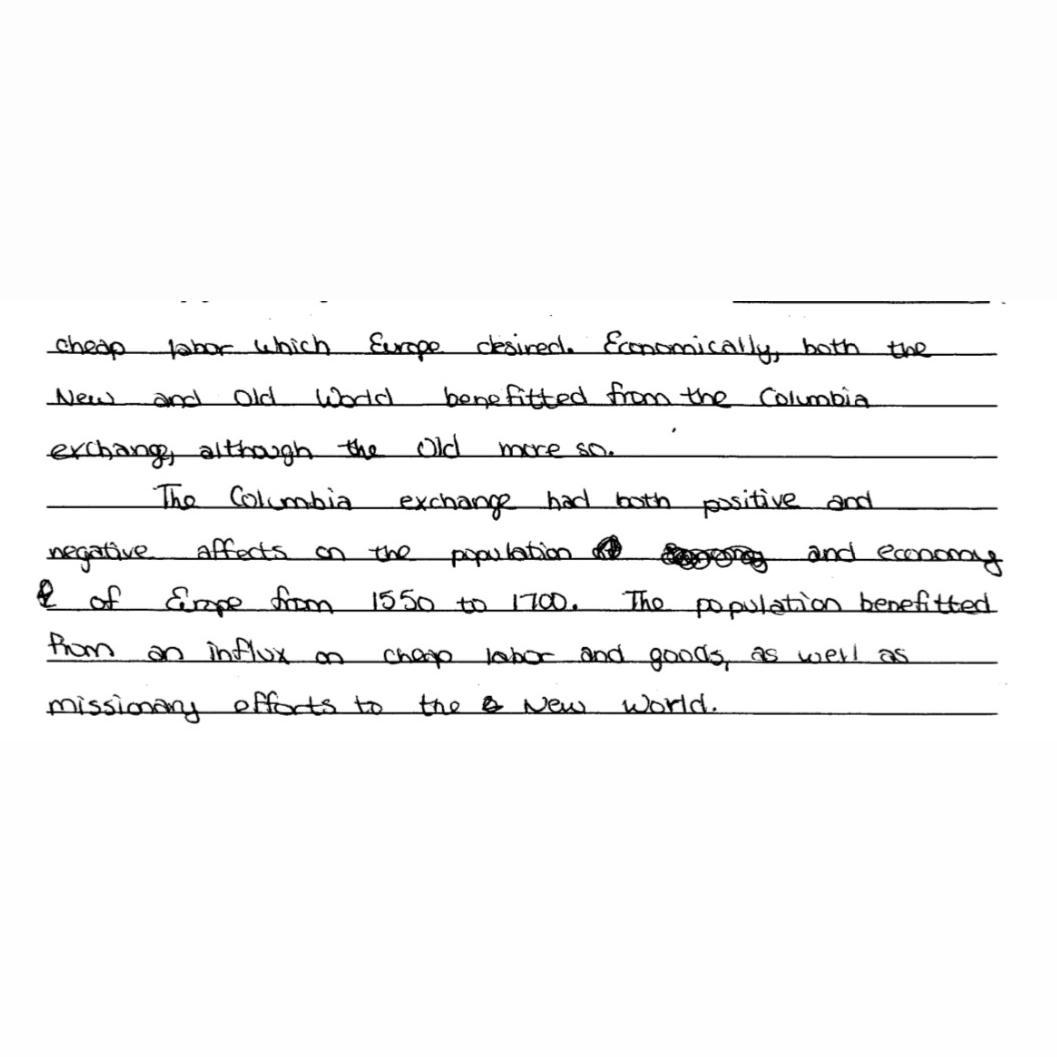 cheap labor which Europe desired. Economically, both the
New and Old World benefitted from the Columbia
exchange, although the Old more so.
The Columbia exchange had both positive and
negative affects on the population and economy
of Europe from 1550 to 1700. The population benefitted
from an influx on cheap labor and goods, as well as
missionary efforts to the New World.